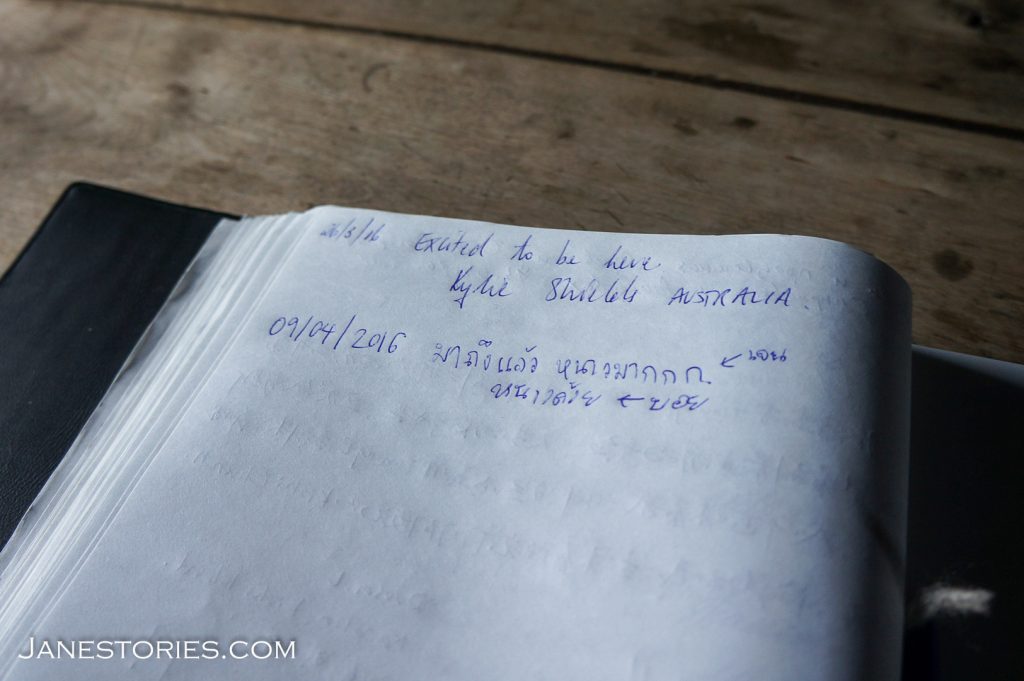 26/3/16 Excited to be here
Kylie Shields AUSTRALIA.
09/04/2016 มาถึงแล้ว หนาวมากกก. ← เจน
หนาวด้วย ← บอย
JANESTORIES.COM